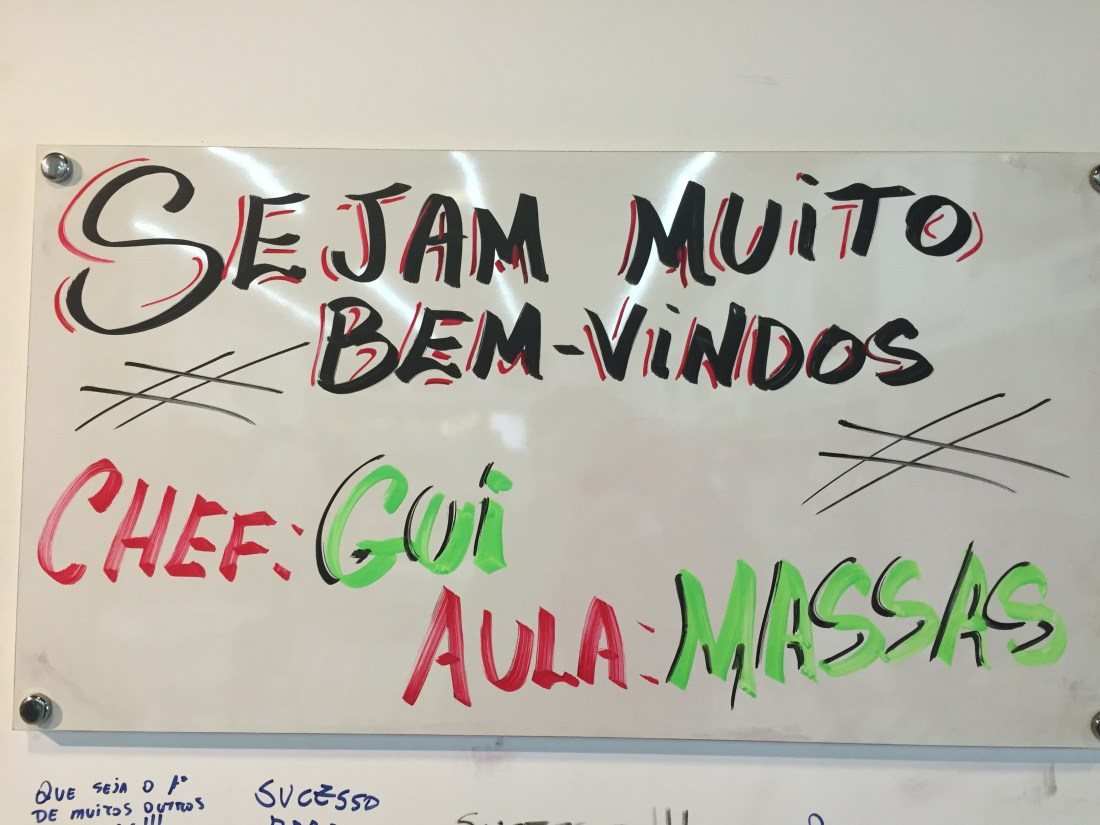 SEJAM MUITO
BEM-VINDOS
CHEF: GUI
AULA: MASSAS
QUE SEJA O 1º
DE MUITOS OUTROS
SUCESSO